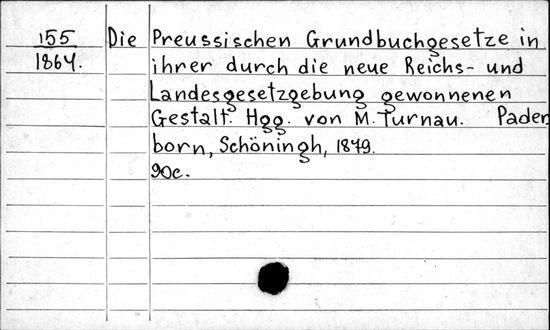 155 Die Preussischen Grundbuchgesetze in
1864. ihrer durch die neue Reichs- und
Landesgesetzgebung gewonnenen
Gestalt. Hgg. von M. Turnau. Pader
born, Schöningh, 1879.
90c.